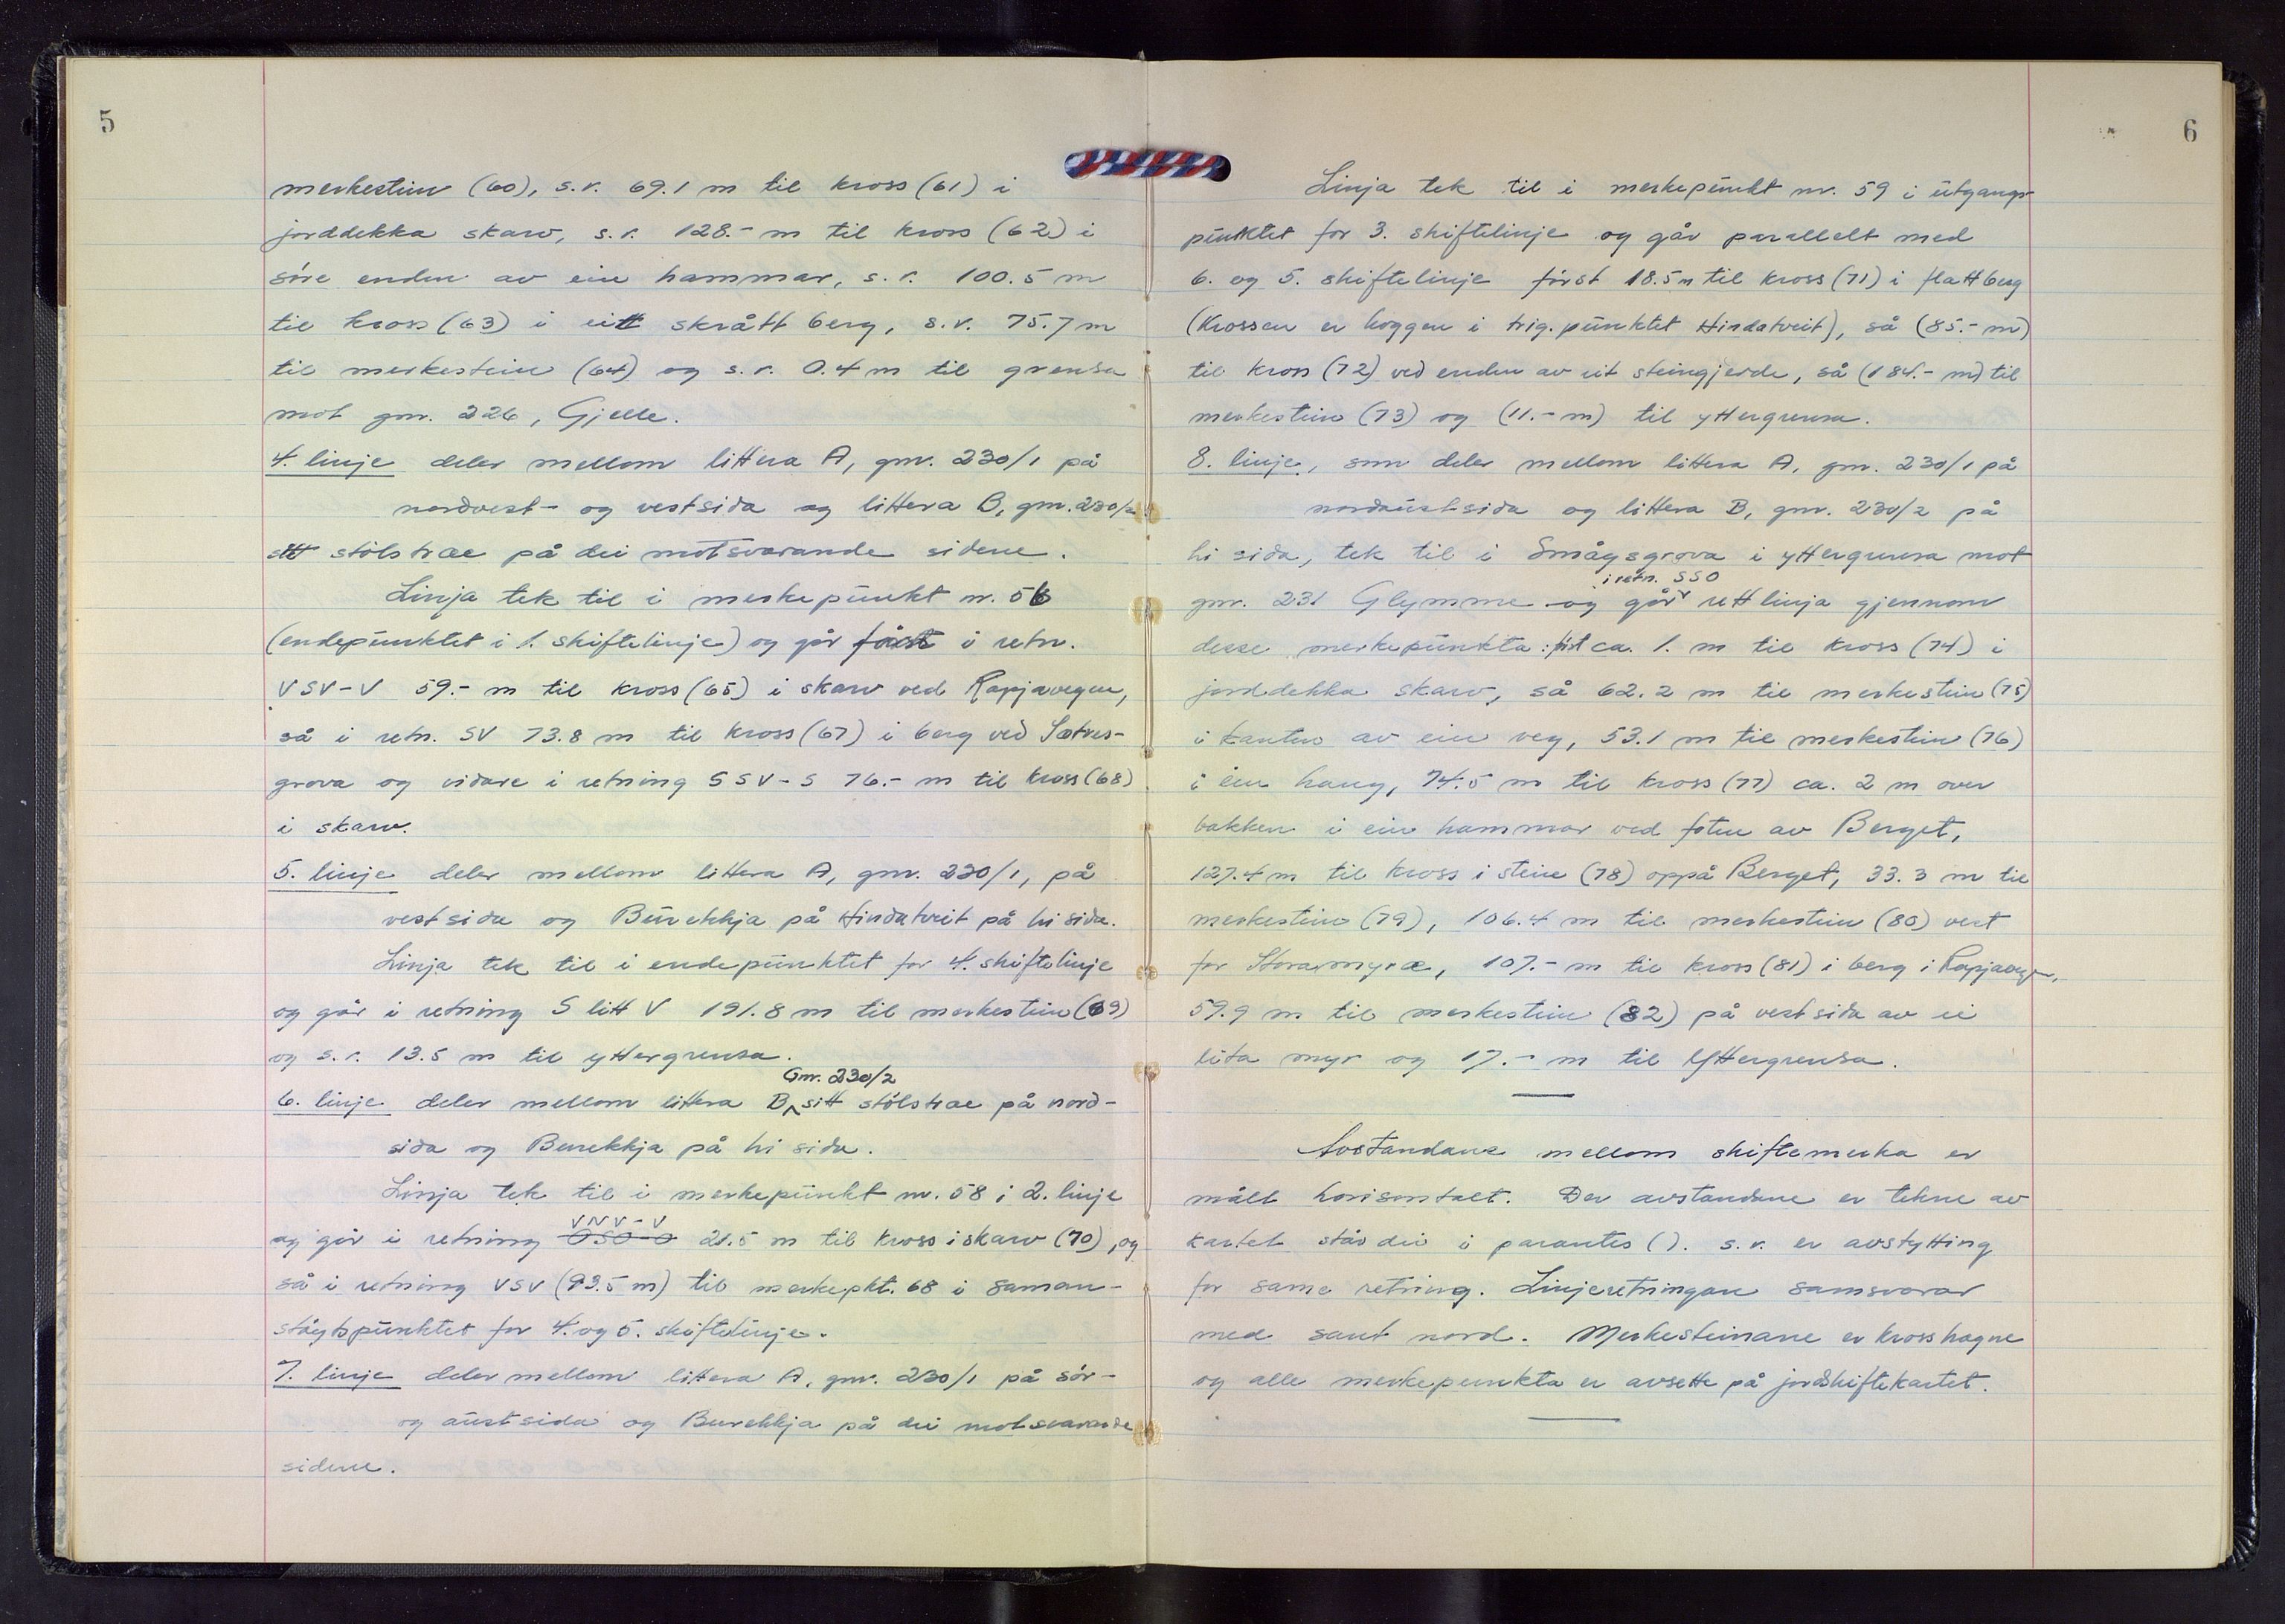 5
merkestein (60), s.r. 69.1 m til kross (61) i
jorddekka skarv, s.r. 128.- m til kross (62) i
søre enden av ein hammar, s.r. 100.5 m
til kross (63) i eitt skrått berg, s.r. 75.7 m
til merkestein (64) og s.r. 0.4 m til grensa
mot gnr. 226, Gjelle.
4. linje deler mellom littera A, gnr. 230/1 på
nordvest- og vestsida og littera B, gnr. 230/2
sitt stølstræe på dei motsvarande sidene.
Linja tek til i merkepunkt nr. 56
(endepunktet i 1. skiftelinje) og går først i retn.
VSV-V 59.- m til kross (65) i skarv ved Rapjavegen,
så i retn. SV 73.8 m til kross (67) i berg ved Sætres-
grova og vidare i retning SSV-S 76.- m til kross (68)
i skarv.
5. linje deler mellom littera A, gnr. 230/1, på
vestsida og Burekkja på Hindatveit på hi sida.
Linja tek til i endepunktet for 4. skiftelinje
og går i retning S litt V 191.8 m til merkestein (69)
og s.r. 13.5 m til yttergrensa.
Gnr. 230/2
6. linje deler mellom littera B sitt stølstræe på nord-
sida og Burekkja på hi sida.
Linja tek til i merkepunkt nr. 58 i 2. linje
VNV-V
og går i retning OSO-O 21.5 m til kross i skarv (70), og
så i retning VSV (93.5 m) til merkepkt. 68 i saman-
støytspunktet for 4. og 5. skiftelinje.
7. linje deler mellom littera A, gnr. 230/1 på sør-
og austsida og Burekkja på dei motsvarande
sidene.
6
Linja tek til i merkepunkt nr. 59 i utgangs-
punktet for 3. skiftelinje og går parallelt med
6. og 5. skiftelinje først 18.5 m til kross (71) i flatt berg
(Krossen er hoggen i trig. punktet Hindatveit), så (85.- m)
til kross (72) ved enden av eit steingjerde, så (184.- m) til
merkestein (73) og (11.- m) til yttergrensa.
8. linje, som deler mellom littera A, gnr. 230/1 på
nordaustsida og littera B, gnr. 230/2 på
hi sida, tek til i Smågsgrova i yttergrensa mot
i retn. SSO
gnr. 231 Glymme og går rettlinja gjennom
desse merkepunkta: fist ca. 1. m til kross (74) i
jorddekka skarv, så 62.2 m til merkestein (75)
i kanten av ein veg, 53.1 m til merkestein (76)
i ein haug, 74.5 m til kross (77) ca. 2 m over
bakken i ein hammar ved foten av Berget,
127.4 m til kross i stein (78) oppå Berget, 33.3 m til
merkestein (79), 106.4 m til merkestein (80) vest
for Storamyræ, 107.- m til kross (81) i berg i Rapjavegen,
59.9 m til merkestein (82) på vestsida av ei
lita myr og 17.- m til Yttergrensa.
Avstandane mellom skiftemerka er
målt horisontalt. Der avstandene er tekne av
kartet står dei i parantes (). s.r. er avstytting
for same retning. Linjeretningane samsvarar
med sant nord. Merkesteinane er krosshogne
og alle merkepunkta er avsette på jordskiftekartet.